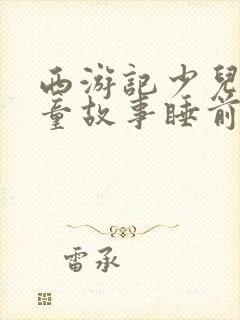 西游记少兒
童故事睡前
雷承